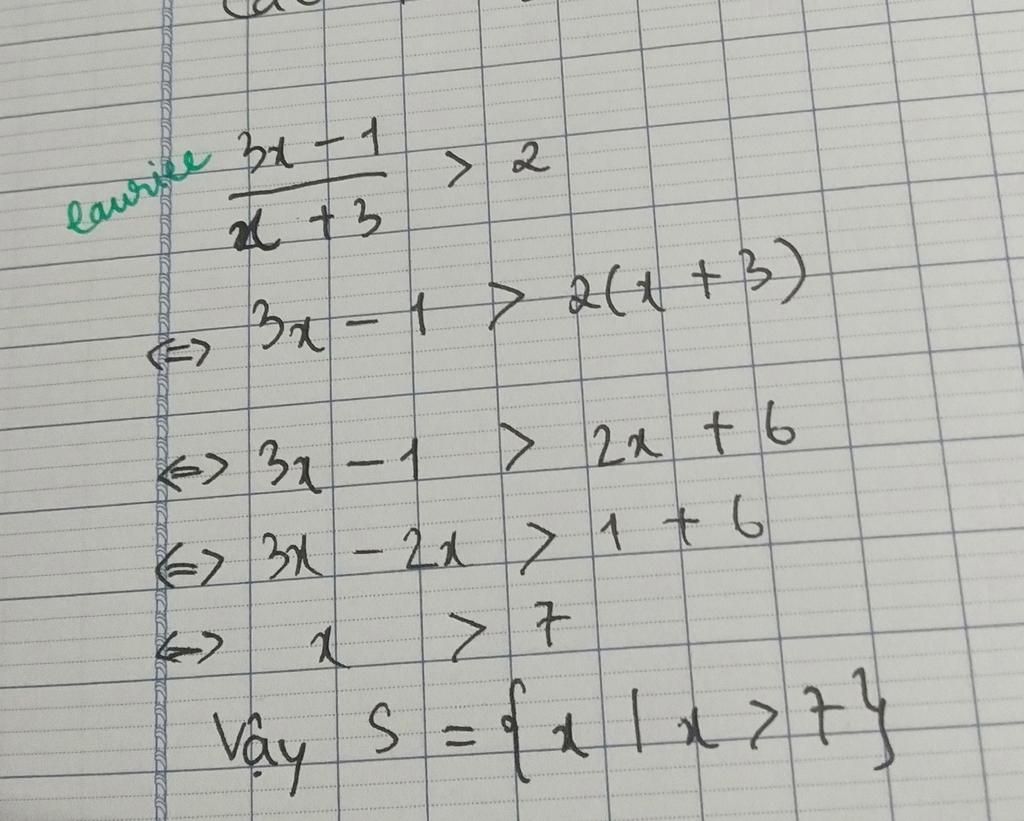 3x - 1 / x + 3 > 2
<=> 3x - 1 > 2(x + 3)
<=> 3x - 1 > 2x + 6
<=> 3x - 2x > 1 + 6
<=> x > 7
Vậy S = { x | x > 7 }